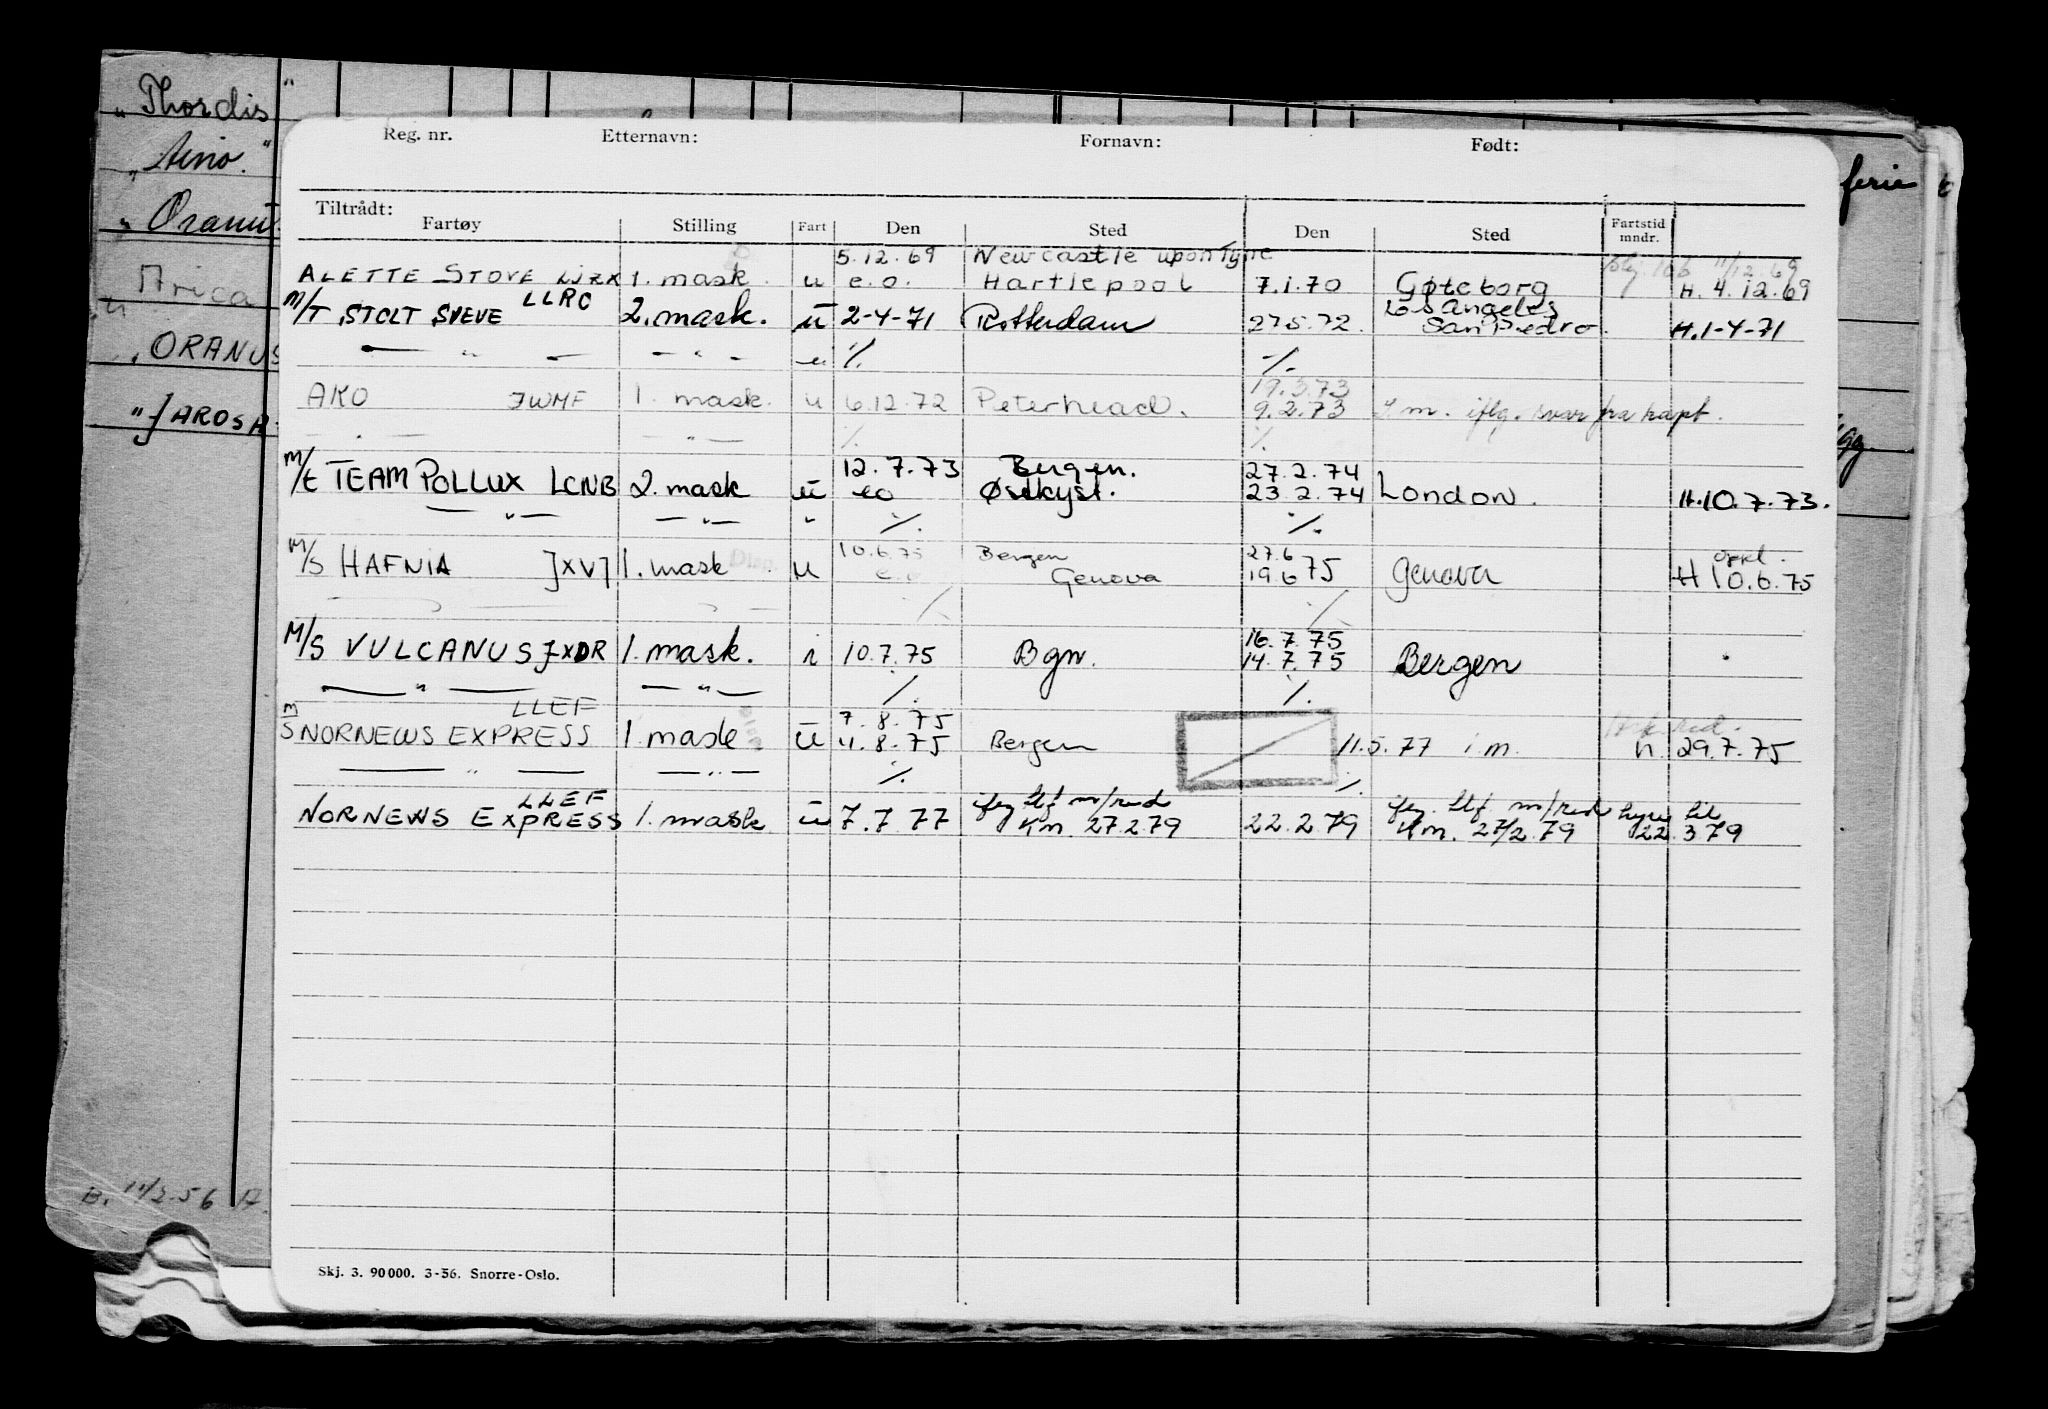 „ Thordis "
„ Aino. "
„ Oranus
Arica
„ ORANUS
" JAROSA
B. 11/2-56
ferie
Reg. nr. Etternavn: Fornavn: Født:
Tiltrådt:
Fartøy Stilling Fart Den Sted Den Sted Fartstid mndr.
5.12.69 Newcastle upon Tyne 11/12.69
ALETTE STOVE 1. mask. u e.o. Hartlepool 7.1.70 Gøteborg H. 4.12.69
LLRC Los Angeles
M/T STOLT SVEVE 2. mask. u 2-4-71 Rotterdam 27.5.72. San Pedro. H.1-4-71
— " — — " — u ./. -/.
19.3.73
AKO JWMF 1. mask. u 6.12.72 Peterhead. 9.2.73 I m. iflg. svar fra kapt.
— " — — " — ./. ./.
12.7.73 Bergen. 27.2.74
M/t TEAM POLLUX LCNB 2. mask u eo Østkyst. 23.2.74 London. H.10.7.73.
— " — — " — " ./. ./.
10.6.75 Bergen 27.6
M/S HAFNIA JXVJ 1. mask u e.o Genova 19.6 75 Genova H 10.6.75
./. ./.
16.7.75
M/S VULCANUS JXDR 1. mask. i 10.7.75 Bgn. 14.7.75 Bergen
— " — — " — ./. ./.
LLEF 7.8.75
M/S NORNEWS EXPRESS 1. mask u 11.8.75 Bergen 11.5.77 i.m. H. 29.7.75
— " — — " — ./. ./.
LLEF m/red m/red hyre til
NORNEWS EXPRESS 1. mask u 7.7.77 Km. 27.2.79 22.2.79 Km. 27/2.79 22.3.79
Skj. 3. 90 000. 3-56. Snorre-Oslo.